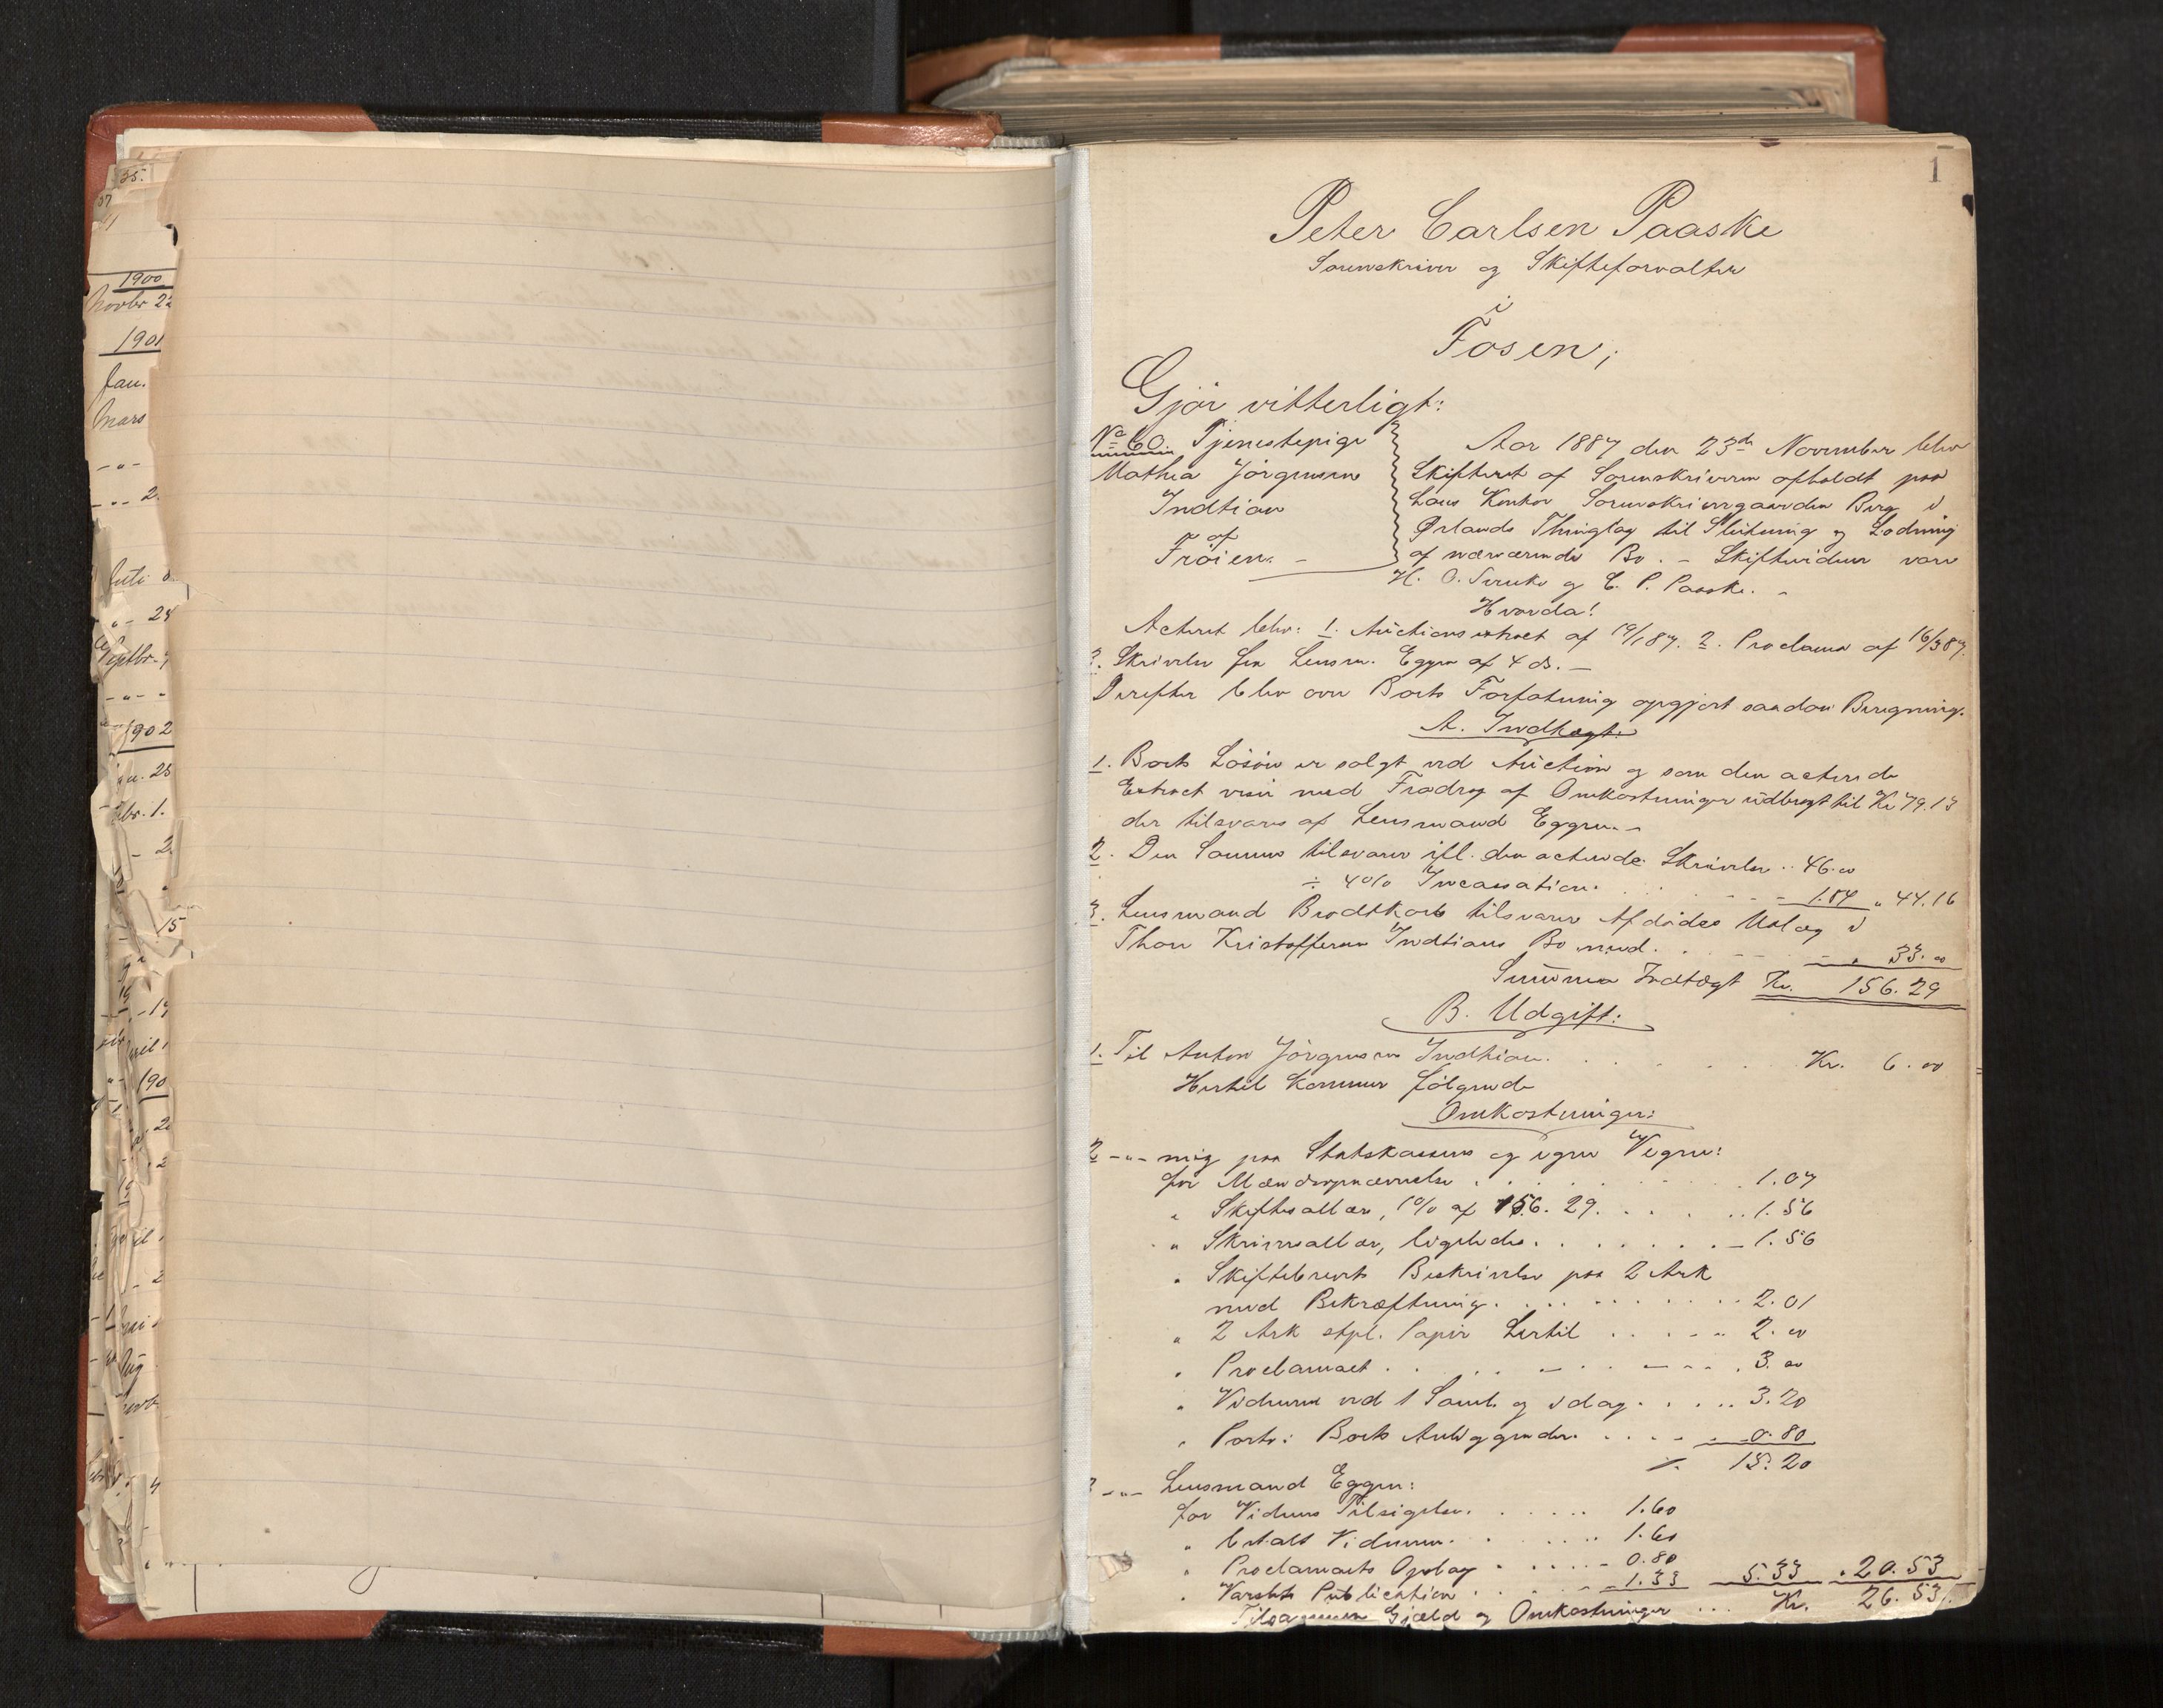 1
Peter Carlsen Paaske
Sorenskriver og Skifteforvalter
i
Fosen;
Gjör vitterligt:
No 60. Tjenestepige
Mathea Jörgensen
Indtian
af
Fröien. -
Aar 1887 den 23de November blev
Skifteret af Sorenskriveren afholdt paa
hans Kontor Sorenskrivergaarden Berg i
Ørlands Thinglag til Slutning og Lodning
af nærværende Bo. - Skiftevidner vare
H. O. og C. P. Paaske. -
Hvorda!
Acteret blev: 1. Auctionsextract af 19/1 87. 2. Proclama af 16/3 87.
3. Skrivelse fra Lensm. Eggen af 4 ds. -
Derefter blev over Boets Forfatning opgjort saadan Beregning.
A. Indtægt:
1. Boets Lösöre er solgt ved Auction og som den acterede
Extract viser med Fradrag af Omkostninger udbragt til Kr 79.13
der tilsvares af Lensmand Eggen. -
2. Den Samme tilsvarer ifl. den acterede Skrivelse .. 46.00
÷ 4% Incassation . . . 1.84 " 44.16
3. Lensmand Brodtkorb tilsvarer Afdödes Udlæg i
Thore Kristoffersen Indtians Bo med . . . " 33.00
Summa Indtægt Kr. 156.29
B. Udgift:
1. Til Anton Jörgensen Indtian . . . Kr. 6.00
Hertil kommer fölgende
Omkostninger:
2 -"- mig paa Statskassens og egne Vegne:
for Mændsopnævnelse . . . 1.07
" Skiftesallær, 1% af 156.29. . . . 1.56
" Skriversallær, ligeledes . . . 1.56
" Skiftebrevets Beskrivelse paa 2 Ark
med Bekræftning . . . 2.01
" 2 Ark stpl. Papir hertil . . . 2.00
" Proclamaet . . . 3.00
" Vidnerne ved 1 Saml. og idag . . . 3.20
" Porto i Boets Anliggender . . . 0.80
15.20
3 -"- Lensmand Eggen:
for Vidners Tilsigelse . . . 1.60
" betalt Vidnerne . . . 1.60
" Proclamaets Opslag . . . 0.80
" Varslets Publication . . . 1.33 5.33 " 20.53
Tilsammen Gjæld og Omkostninger ... Kr. 26.53
1900
Novbr 22
1901
Jan.
Mars
1902